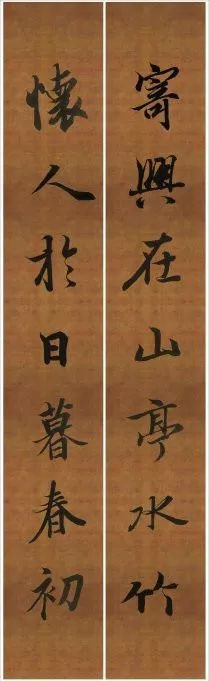 寄興在山亭水竹
懷人於日暮春初